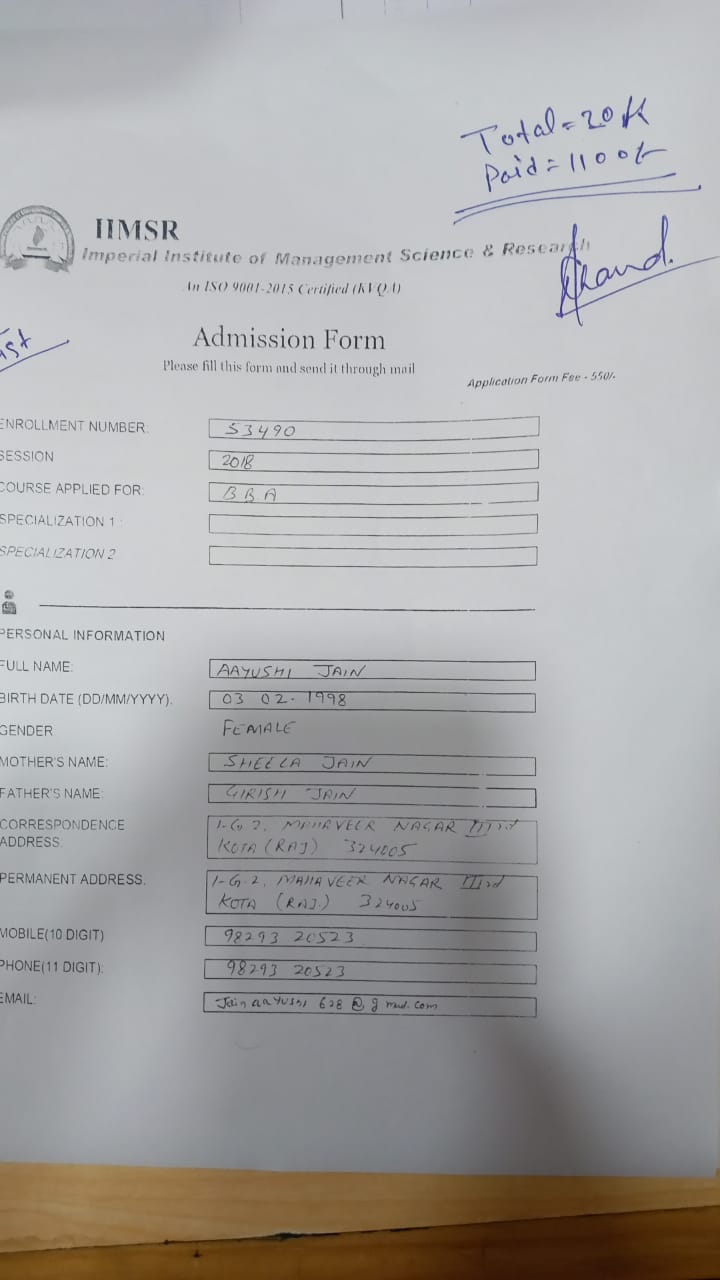 Total = 20 K
Paid = 1100/-
IIMSR
Imperial Institute of Management Science & Research
An ISO 9001-2015 Certified (KVQA)
Admission Form
Please fill this form and send it through mail
Application Form Fee - 550/-
ENROLLMENT NUMBER: 53490
SESSION 2018
COURSE APPLIED FOR: BBA
SPECIALIZATION 1 :
SPECIALIZATION 2
PERSONAL INFORMATION
FULL NAME: AAYUSHI JAIN
BIRTH DATE (DD/MM/YYYY). 03 02. 1998
GENDER FEMALE
MOTHER'S NAME: SHEELA JAIN
FATHER'S NAME: GIRISH JAIN
CORRESPONDENCE ADDRESS: 1-G 2, MAHAVEER NAGAR IIIrd
KOTA (RAJ) 324005
PERMANENT ADDRESS: 1-G-2, MAHAVEER NAGAR IIIrd
KOTA (RAJ.) 324005
MOBILE(10 DIGIT) 98293 20523
PHONE(11 DIGIT): 98293 20523
EMAIL: Jainaayushi628@gmail.com